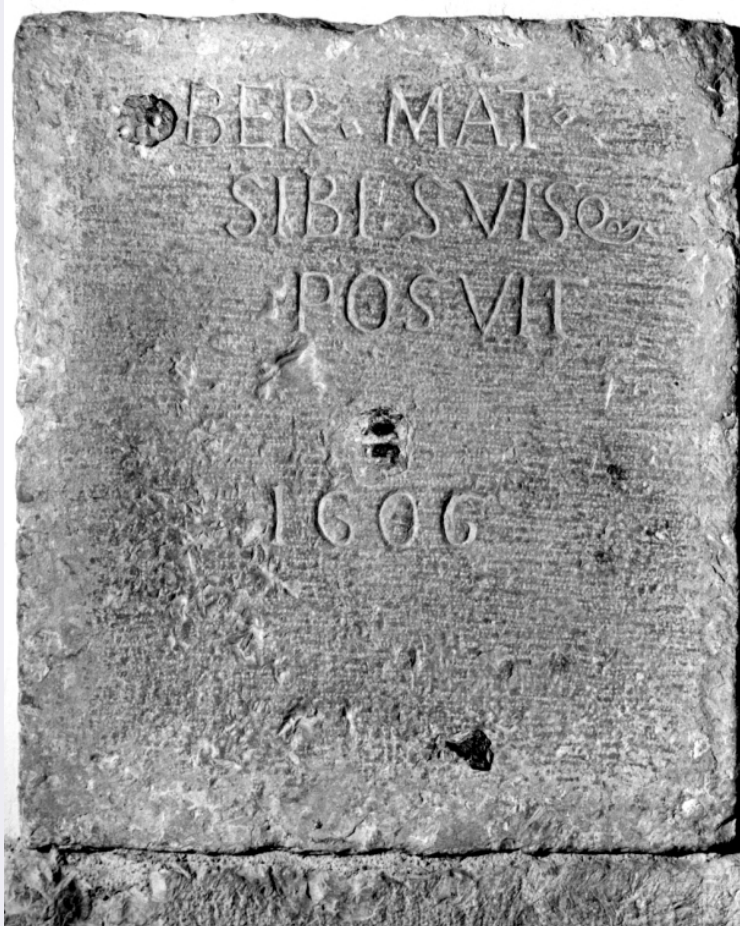 BER · MAT ·
SIBI SVISQ
POSVIT
1606